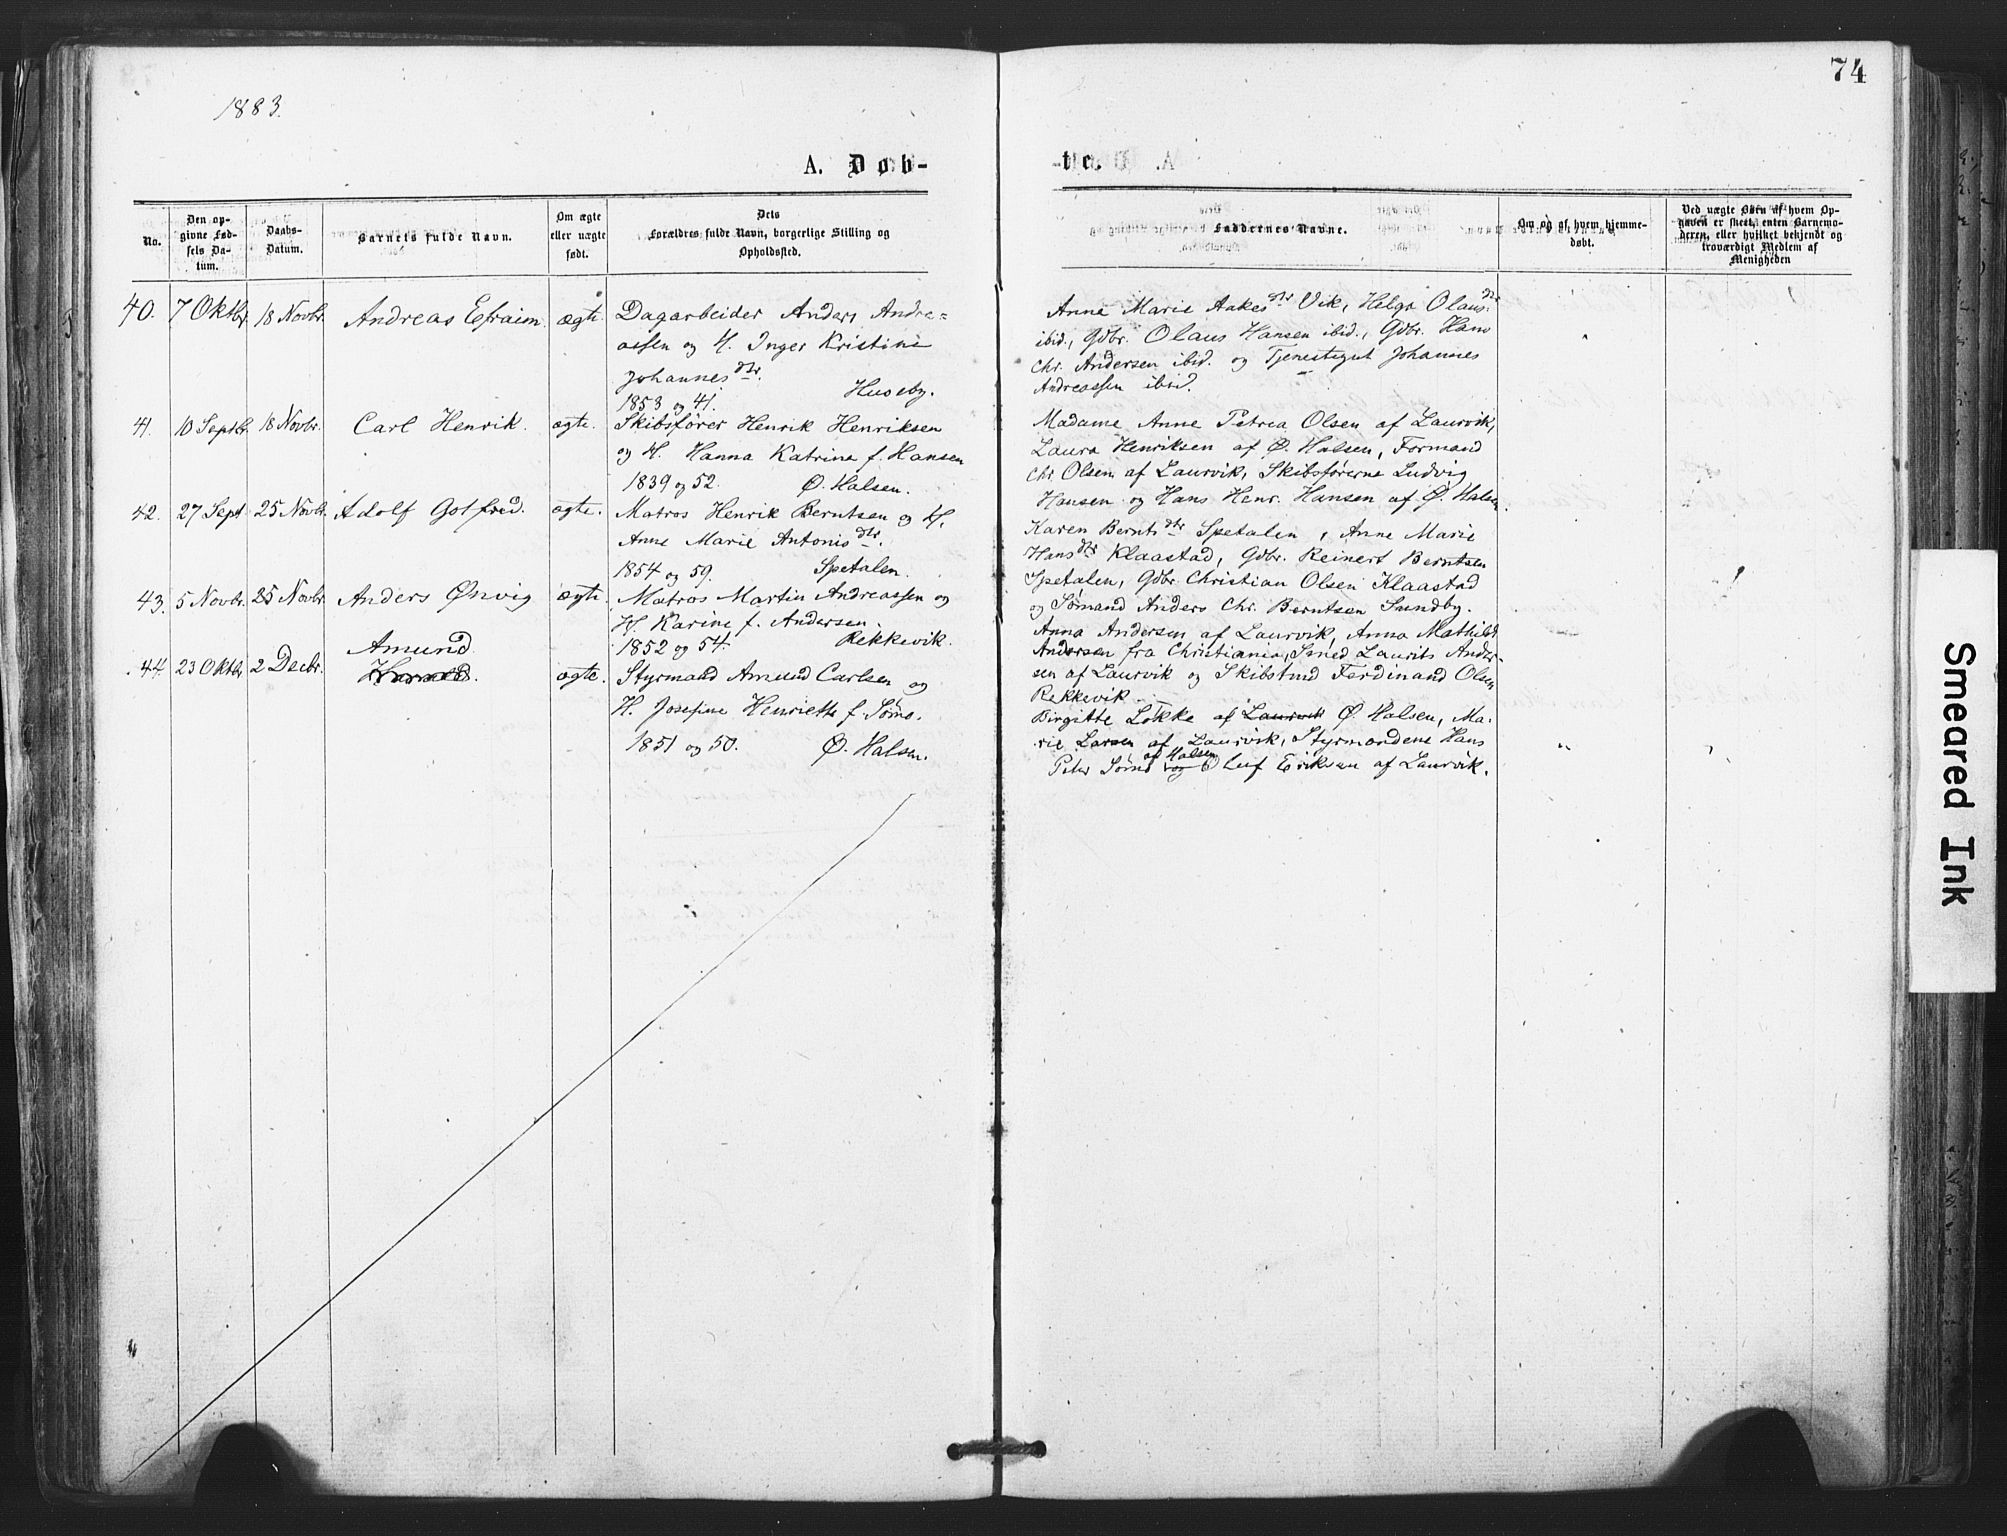 74
1883.
A. Døb-
te.
No.
Den op-
givne Fød-
sels Da-
tum.
Daabs-
Datum.
Barnets fulde Navn.
Om ægte
eller uægte
født.
Dets
Forældres fulde Navn, borgerlige Stilling og
Opholdssted.
Faddernes Navne.
Om og af hvem hjemme-
døbt.
Ved uægte Børn af hvem Op-
gaven er skeet, enten Barnemo-
deren, eller hvilket bekjendt og
troværdigt Medlem af
Menigheden
40. 7 Oktbr. 18 Novbr. Andreas Efraim. ægte. Dagarbeider Anders Andre-
assen og H. Inger Kristine
Johannesdtr. Huseby.
1853 og 41.
Anne Marie Aakesdtr Vik, Helga Olausdtr
ibid., Gdbr. Olaus Hansen ibid., Gdbr. Hans
Chr. Andersen ibid. og Tjenestegut Johannes
Andreassen ibid.
41. 10 Septbr. 18 Novbr. Carl Henrik. ægte. Skibsfører Henrik Henriksen
og H. Hanna Katrine f. Hansen
1839 og 52. Ø. Halsen.
Madame Anne Petrea Olsen af Laurvik,
Laura Henriksen af Ø. Halsen, Formand
Chr. Olsen af Laurvik, Skibsførerne Ludvig
Hansen og Hans Henr. Hansen af Ø. Halsen.
42. 27 Sept 25 Novbr. Adolf Gotfred. ægte. Matros Henrik Berntsen og H.
Anne Marie Antonisdtr.
1854 og 59. Spetalen.
Karen Berntsdtr Spetalen, Anne Marie
Hansdtr Klaastad, Gdbr. Reinert Berntsen
Spetalen, Gdbr. Christian Olsen Klaastad
og Sømand Anders Chr. Berntsen Sundby.
43. 5 Novbr. 25 Novbr. Anders Ønvig ægte. Matros Martin Andreassen og
H. Karine f. Andersen.
1852 og 54. Rekkevik.
Anna Andersen af Laurvik, Anna Mathilde
Andersen fra Christiania, Smed Laurits Ander-
sen af Laurvik og Skibstmd Ferdinand Olsen
Rekkevik.
Amund.
44. 23 Oktbr 2 Decbr. ægte. Styrmand Amund Carlsen og
H. Josefine Henriette f. Sørns.
1851 og 50. Ø. Halsen.
Birgitte Løkke af Laurvik Ø. Halsen, Ma-
rie Larsen af Laurvik, Styrmændene Hans
af Halsen
Peter og Oluf Eriksen af Laurvik.
Smeared Ink